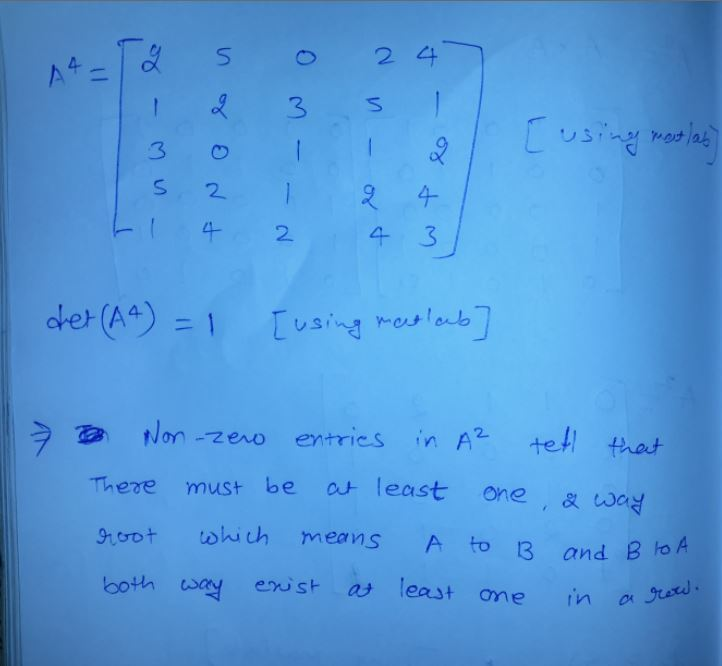 A⁴ = [ 2 5 0 2 4
1 2 3 5 1 [using matlab]
3 0 1 1 2
5 2 1 2 4
1 4 2 4 3 ]
det(A⁴) = 1 [using matlab]
⇒ Non-zero entries in A² tell that
There must be at least one, 2 way
root which means A to B and B to A
both way exist at least one in a row.